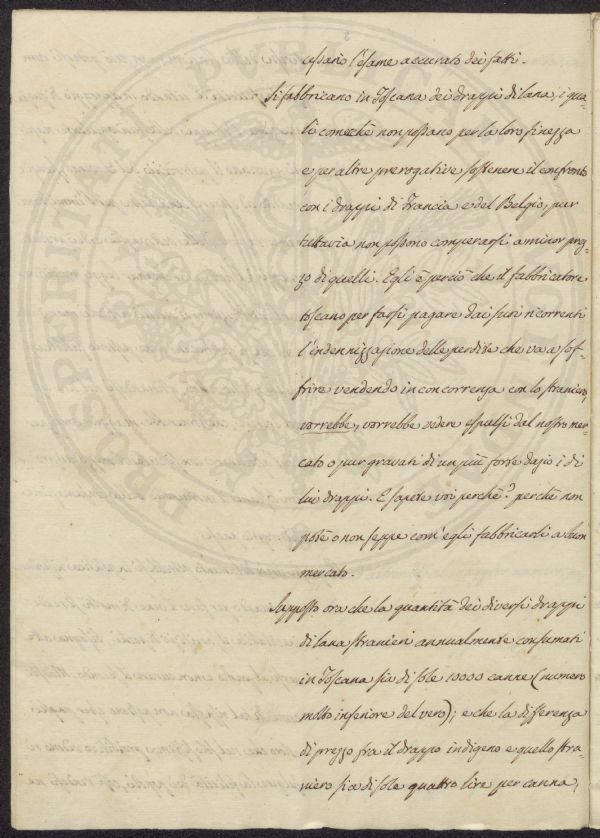 3
cessario l'esame accurato dei fatti.
Si fabbricano in Toscana dei drappi di lana, i qua-
li comechè non possano per la loro finezza
e per altre prerogative sostenere il confronto
con i drappi di Francia e del Belgio, pur
tuttavia non possono comperarsi a minor prez-
zo di quelli. Egli è perciò che il fabbricatore
toscano per farsi pagare dai suoi ricorrenti
l'indennizzazione delle perdite che va a sof-
frire vendendo in concorrenza con lo straniero,
vorrebbe, vorrebbe vedere espulsi dal nostro mer-
cato o pur gravati di un più forte dazio i di
lui drappi. E sapete voi perchè? perchè non
potè o non seppe com' egli fabbricarli a buon
mercato.
Supposto ora che la quantità dei diversi drappi
di lana stranieri annualmente consumati
in Toscana sia di sole 10000 canne (numero
molto inferiore del vero); e che la differenza
di prezzo fra il drappo indigeno e quello stra-
niero sia di sole quattro lire per canna,
PROSPERITATI PUBLICAE